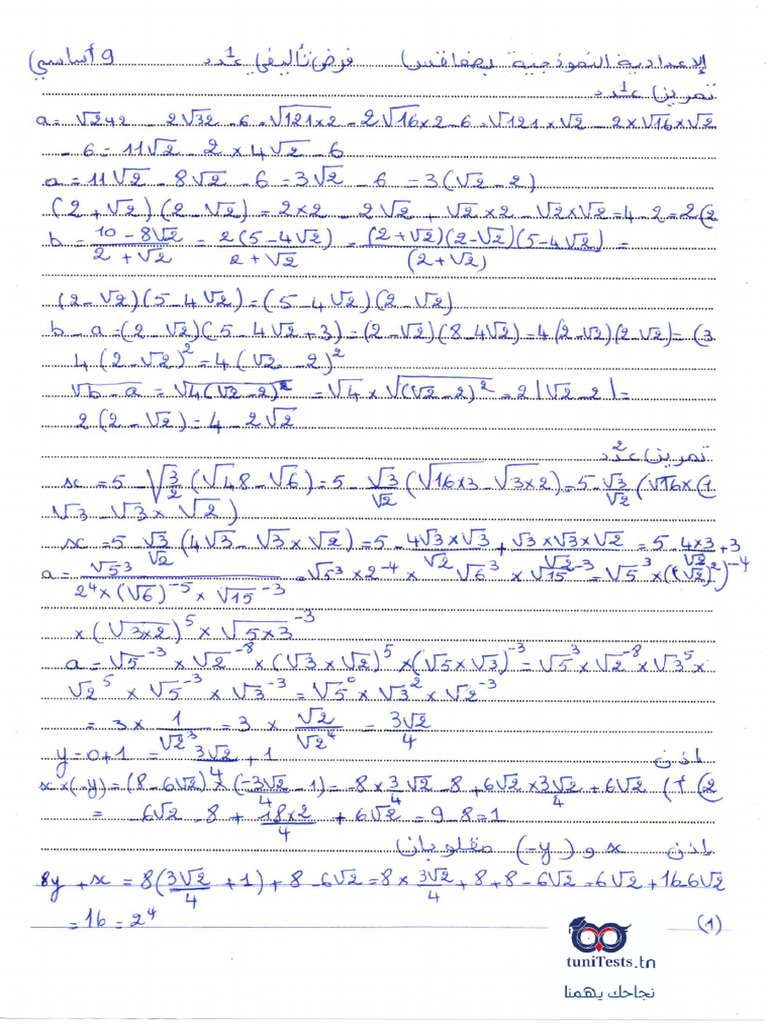 الإعدادية النموذجية بصفاقس فرض تأليفي عدد 1 9 أساسي
تمرين عدد 1
a = √242 - 2√32 - 6 = √121×2 - 2√16×2 - 6 = √121 × √2 - 2×√16×√2
- 6 = 11√2 - 2 × 4√2 - 6
a = 11√2 - 8√2 - 6 = 3√2 - 6 = 3(√2 - 2)
(2 + √2)(2 - √2) = 2×2 - 2√2 + √2×2 - √2×√2 = 4 - 2 = 2 (2
b = (10 - 8√2)/(2 + √2) = 2(5 - 4√2)/(2 + √2) = (2+√2)(2-√2)(5-4√2)/(2+√2) =
(2 - √2)(5 - 4√2) = (5 - 4√2)(2 - √2)
b - a = (2 - √2)(5 - 4√2 + 3) = (2 - √2)(8 - 4√2) = 4(2 - √2)(2 - √2) = (3
4(2 - √2)² = 4(√2 - 2)²
√b - a = √4(√2 - 2)² = √4 × √(√2 - 2)² = 2|√2 - 2| =
2(2 - √2) = 4 - 2√2
تمرين عدد 2
x = 5 - √3/2 (√48 - √6) = 5 - √3/√2 (√16×3 - √3×2) = 5 - √3/√2 (√16× (1
√3 - √3 × √2)
x = 5 - √3/√2 (4√3 - √3 × √2) = 5 - 4√3×√3/√2 + √3×√3×√2/√2 = 5 - 4×3/√2 + 3
a = √5³/(2⁴×(√6)⁻⁵×√15⁻³) = √5³ × 2⁻⁴ × √6³ × √15⁻³ = √5³ × ((√2)²)⁻⁴
× (√3×2)⁵ × √5×3⁻³
a = √5⁻³ × √2⁻⁸ × (√3 × √2)⁵ × (√5 × √3)⁻³ = √5³ × √2⁻⁸ × √3⁵ ×
√2⁵ × √5⁻³ × √3⁻³ = √5⁰ × √3² × √2⁻³
= 3 × 1/√2³ = 3 × √2/√2⁴ = 3√2/4
y = a + 1 = 3√2/4 + 1 إذن
x × (-y) = (8 - 6√2) × (-3√2/4 - 1) = -8 × 3/4 √2 - 8 + 6√2 × 3√2/4 + 6√2 (2
= -6√2 - 8 + 18×2/4 + 6√2 = 9 - 8 = 1
إذن x و (-y) مقلوبان
8y + x = 8(3√2/4 + 1) + 8 - 6√2 = 8 × 3√2/4 + 8 + 8 - 6√2 = 6√2 + 16 - 6√2
= 16 = 2⁴
(1)
tuniTests.tn
نجاحك يهمنا